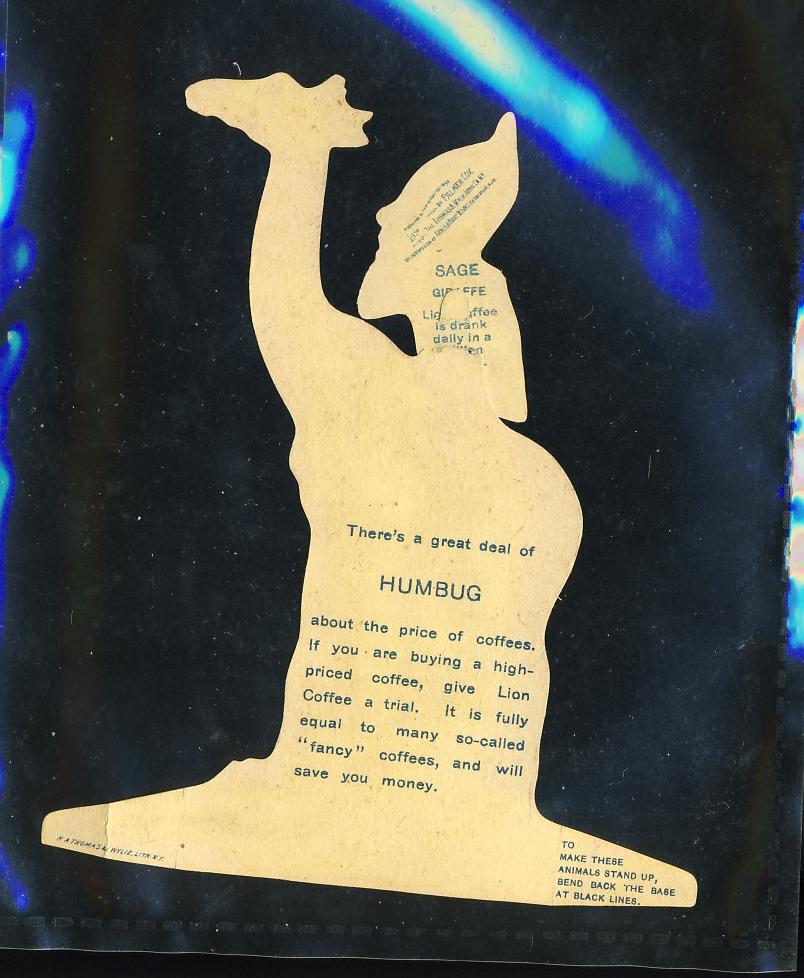 BY PALMER COX
SAGE
GIRAFFE
Lion Coffee
is drank
daily in a
There's a great deal of
HUMBUG
about the price of coffees.
If you are buying a high-
priced coffee, give Lion
Coffee a trial. It is fully
equal to many so-called
"fancy" coffees, and will
save you money.
H.A THOMAS & WYLIE, LITH. N.Y.
TO
MAKE THESE
ANIMALS STAND UP,
BEND BACK THE BASE
AT BLACK LINES.